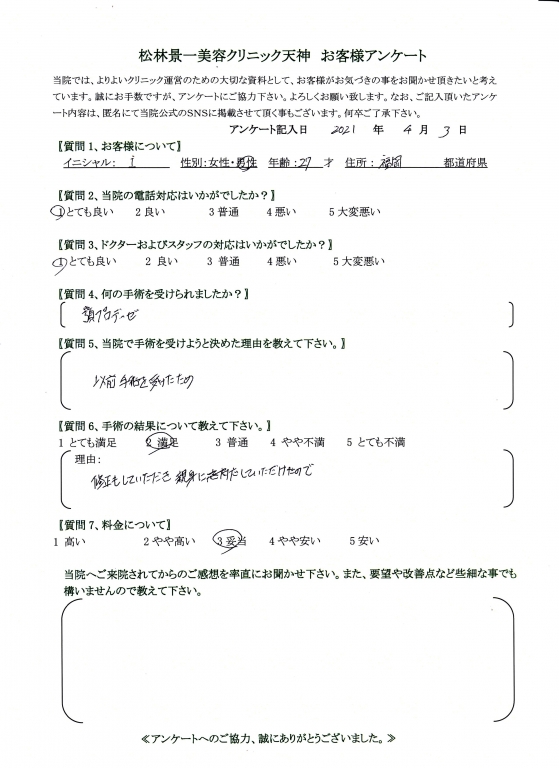 松林景一美容クリニック天神　お客様アンケート
当院では、よりよいクリニック運営のための大切な資料として、お客様がお気づきの事をお聞かせ頂きたいと考え
ています。誠にお手数ですが、アンケートにご協力下さい。よろしくお願い致します。なお、ご記入頂いたアンケ
ート内容は、匿名にて当院公式のSNSに掲載させて頂く事もございます。何卒ご了承下さい。
アンケート記入日　2021　年　4　月　3　日
【質問 1、お客様について】
イニシャル：　i　性別：女性・男性　年齢：27　才　住所：福岡　都道府県
【質問 2、当院の電話対応はいかがでしたか？】
1 とても良い　2 良い　3 普通　4 悪い　5 大変悪い
【質問 3、ドクターおよびスタッフの対応はいかがでしたか？】
1 とても良い　2 良い　3 普通　4 悪い　5 大変悪い
【質問 4、何の手術を受けられましたか？】
顎プロテーゼ
【質問 5、当院で手術を受けようと決めた理由を教えて下さい。】
以前手術を受けたため
【質問 6、手術の結果について教えて下さい。】
1 とても満足　2 満足　3 普通　4 やや不満　5 とても不満
理由：
修正もしていただき 親身に対応していただけたので
【質問 7、料金について】
1 高い　2 やや高い　3 妥当　4 やや安い　5 安い
当院へご来院されてからのご感想を率直にお聞かせ下さい。また、要望や改善点など些細な事でも
構いませんので教えて下さい。
≪アンケートへのご協力、誠にありがとうございました。≫